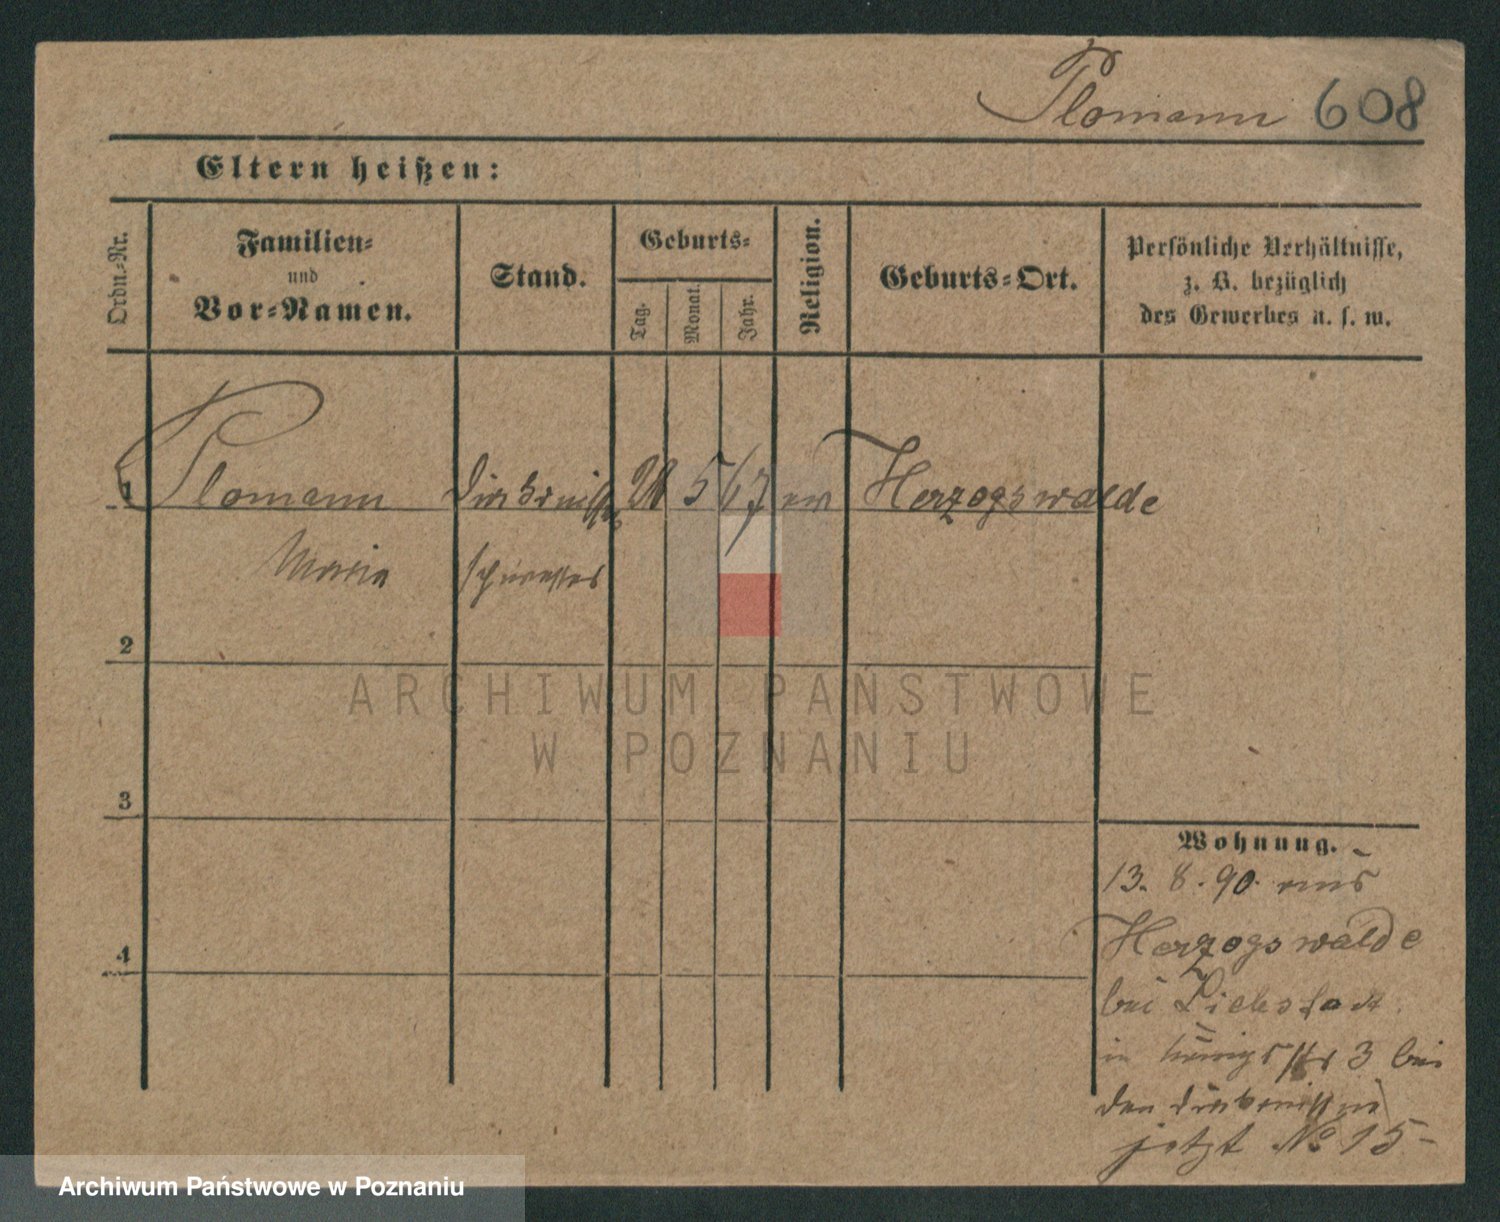 Plomann 608
Eltern heißen:
Ordn.-Nr.
Familien-
und
Vor-Namen.
Stand.
Geburts-
Tag.
Monat.
Jahr.
Religion.
Geburts-Ort.
Persönliche Verhältnisse,
z. B. bezüglich
des Gewerbes u. s. w.
1 Plomann Diakonissen 21 5 67 ev Herzogswalde
Maria schwester
2
3
4
Wohnung.
13. 8. 90. aus
Herzogswalde
bei Liebstadt
in Königsstr 3 bei
den Diakonissen
jetzt No 15-
ARCHIWUM PAŃSTWOWE
W POZNANIU
Archiwum Państwowe w Poznaniu